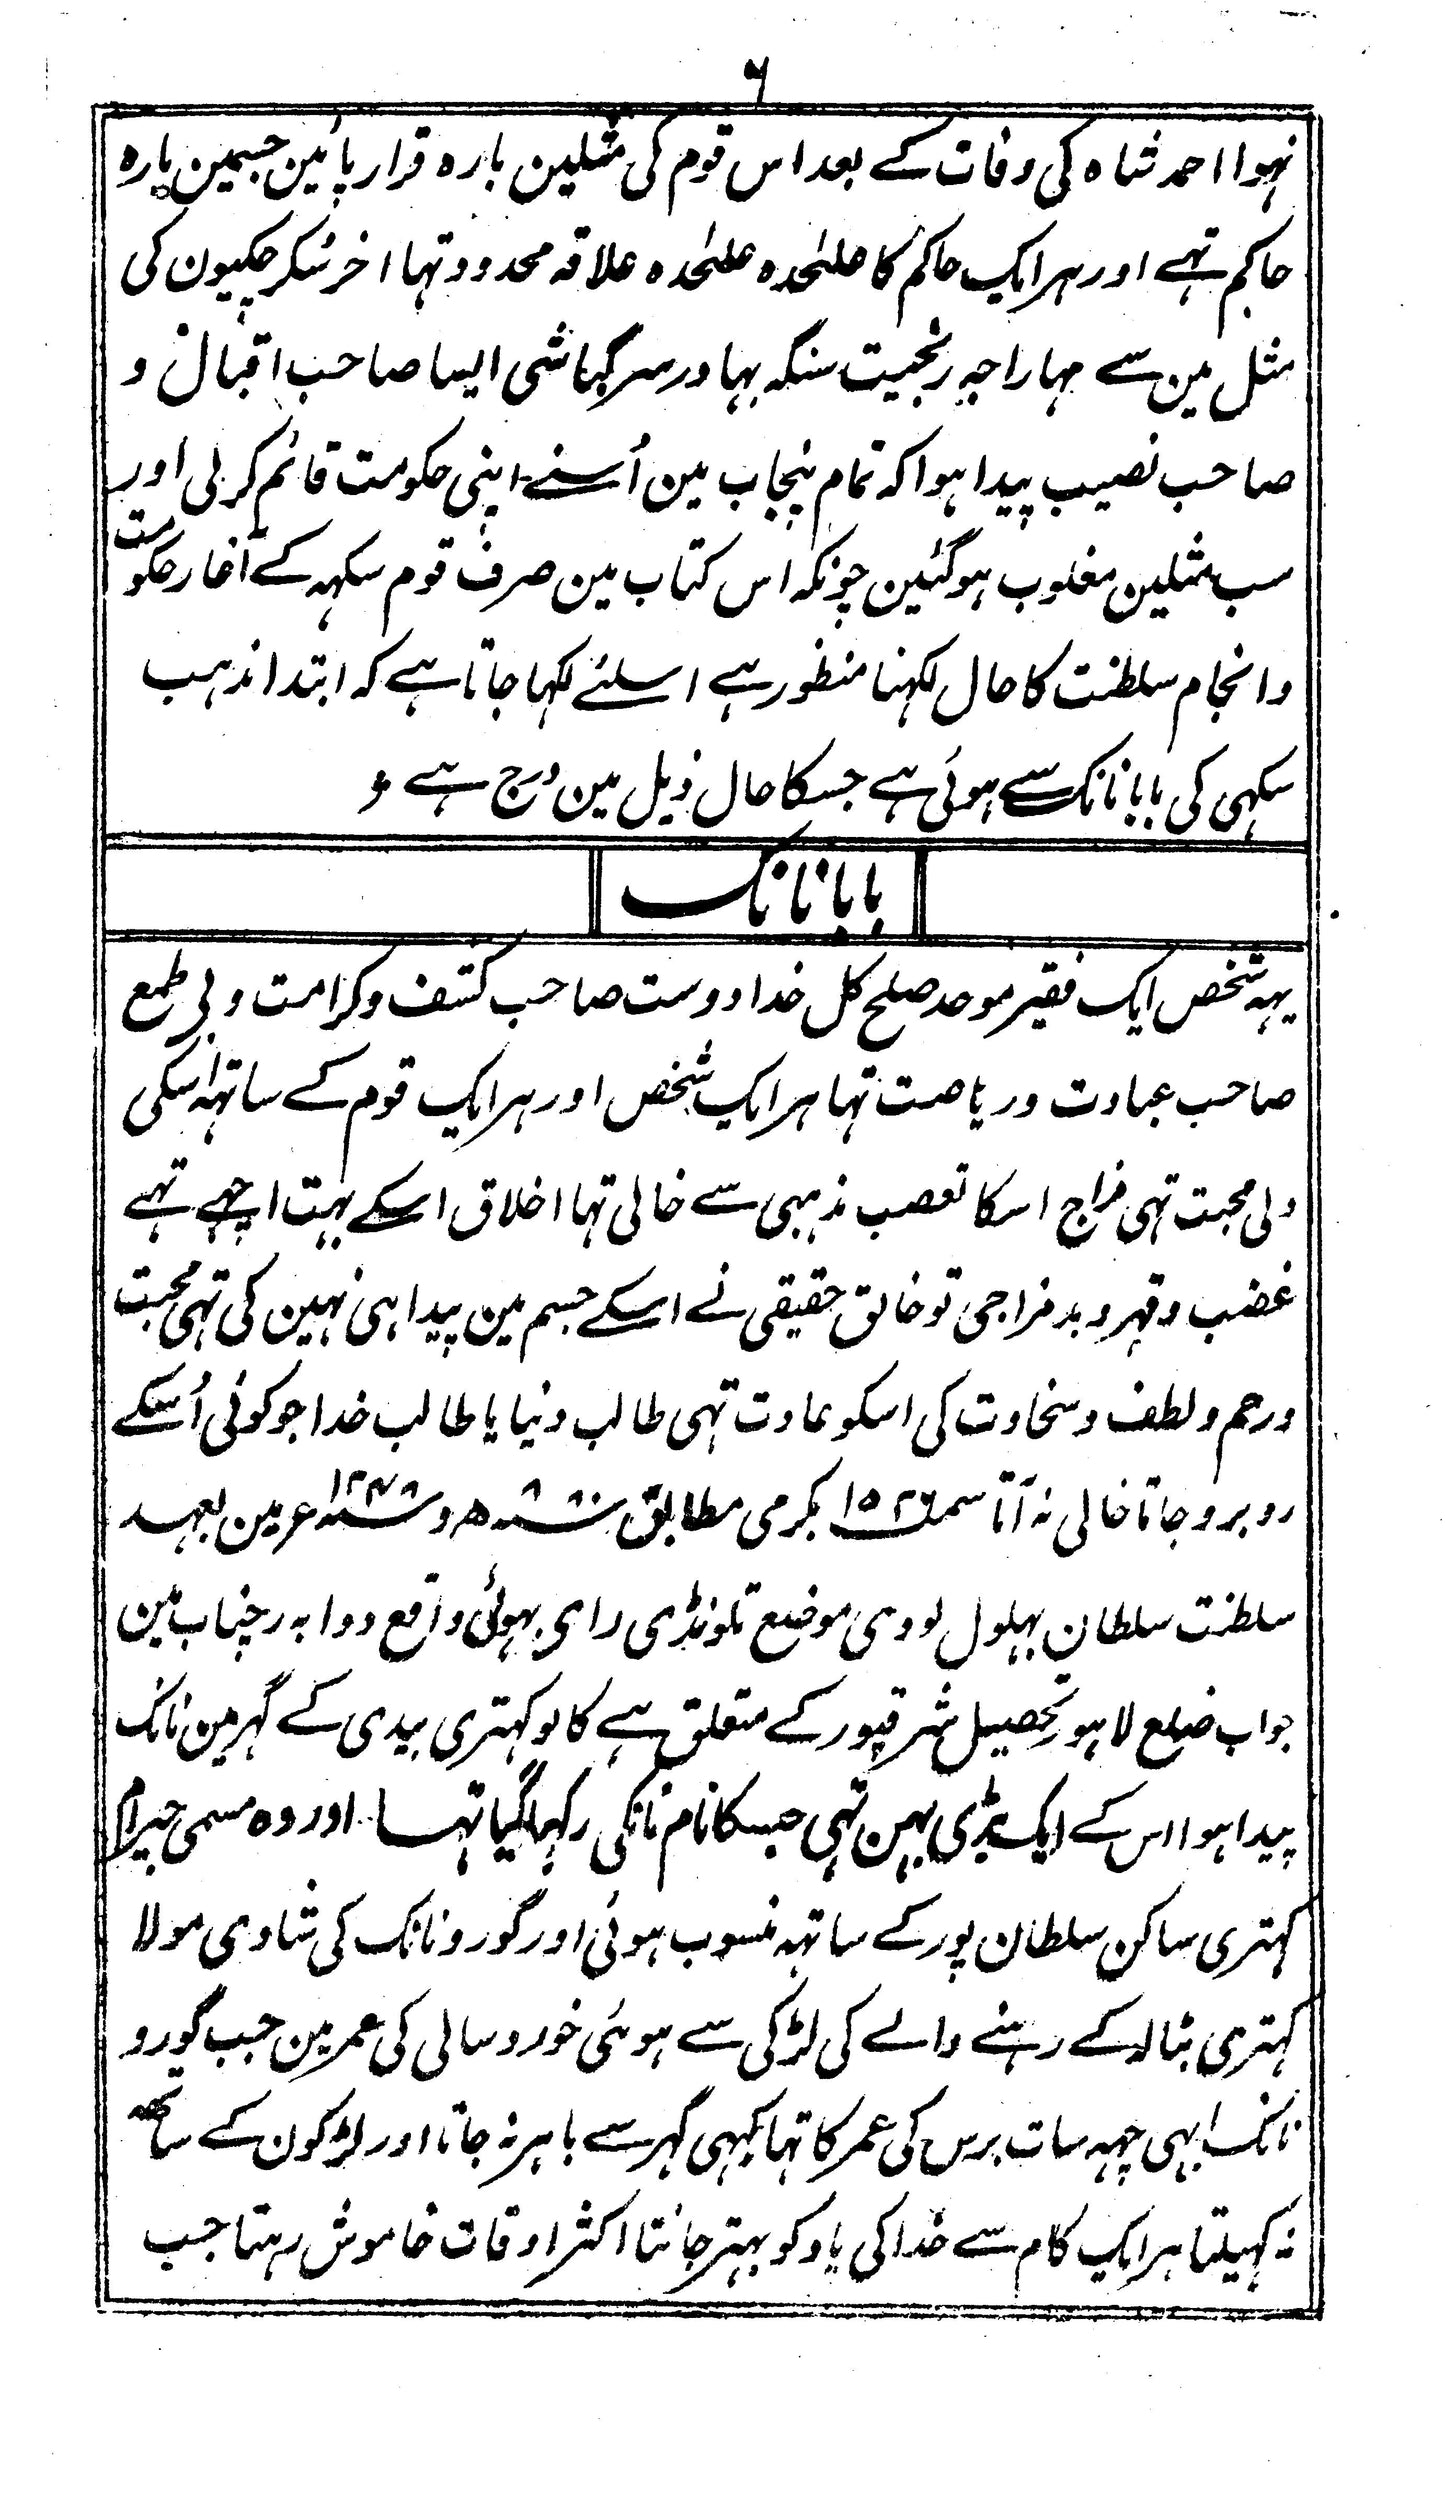 ۶
نہوا احمد شاہ کی وفات کے بعد اس قوم کی مثلین بارہ قرار پائین جسمین بارہ
حاکم تہے اور ہر ایک حاکم کا علیٰحدہ علیٰحدہ علاقہ محدود تہا اخر شکر چکیون کی
مثل مین سے مہاراجہ رنجیت سنگہ بہادر سرگباشی ایسا صاحب اقبال و
صاحب نصیب پیدا ہوا کہ تمام پنجاب مین اُسنے اپنی حکومت قائم کر لی اور
سب مثلین مغلوب ہوگئین چونکہ اس کتاب مین صرف قوم سکہہ کے آغاز حکومت
و انجام سلطنت کا حال لکہنا منظور ہے اسلئے لکہا جاتا ہے کہ ابتدا مذہب
سکہی کی بابا نانک سے ہوئی ہے جسکا حال ذیل مین درج ہے
بابا نانک
یہہ شخص ایک فقیر موحد صلح کل خدا دوست صاحب کشف و کرامت و بی طمع
صاحب عبادت و ریاضت تہا ہر ایک شخص اور ہر ایک قوم کے ساتہہ اسکی
دلی محبت تہی مزاج اسکا تعصب مذہبی سے خالی تہا اخلاق اسکے بہت اچہے تہے
غضب و قہر و بدمزاجی تو خالق حقیقی نے اسکے جسم مین پیدا ہی نہین کی تہی محبت
و رحم و لطف و سخاوت کی اسکو عادت تہی طالب دنیا یا طالب خدا جو کوئی اُسکے
روبرو جاتا خالی نہ آتا سمت ۱۵۲۶ بکرمی مطابق سنہ ۸۸۰ھ و سنہ ۱۴۷۸ع مین بعہد
سلطنت سلطان بہلول لودی موضع تلونڈی رای بہوئی واقع دوابہ رچناب مین
جو اب ضلع لاہور تحصیل شرقپور کے متعلق ہے کالو کہتری بیدی کے گہر مین نانک
پیدا ہوا اس کے ایک بڑی بہن تہی جسکا نام نانکی رکہا گیا تہا اور وہ مسمی جیرام
کہتری ساکن سلطان پور کے ساتہہ منسوب ہوئی اور گورو نانک کی شادی مولا
کہتری بٹالہ کے رہنے والے کی لڑکی سے ہوئی خورد سالی کی عمر مین جب گورو
نانک ابہی چہہ سات برس کی عمر کا تہا کبہی گہر سے باہر نہ جاتا اور لڑکون کے ساتھہ
نہ کہیلتا ہر ایک کام سے خدا کی یاد کو بہتر جانتا اکثر اوقات خاموش رہتا جب